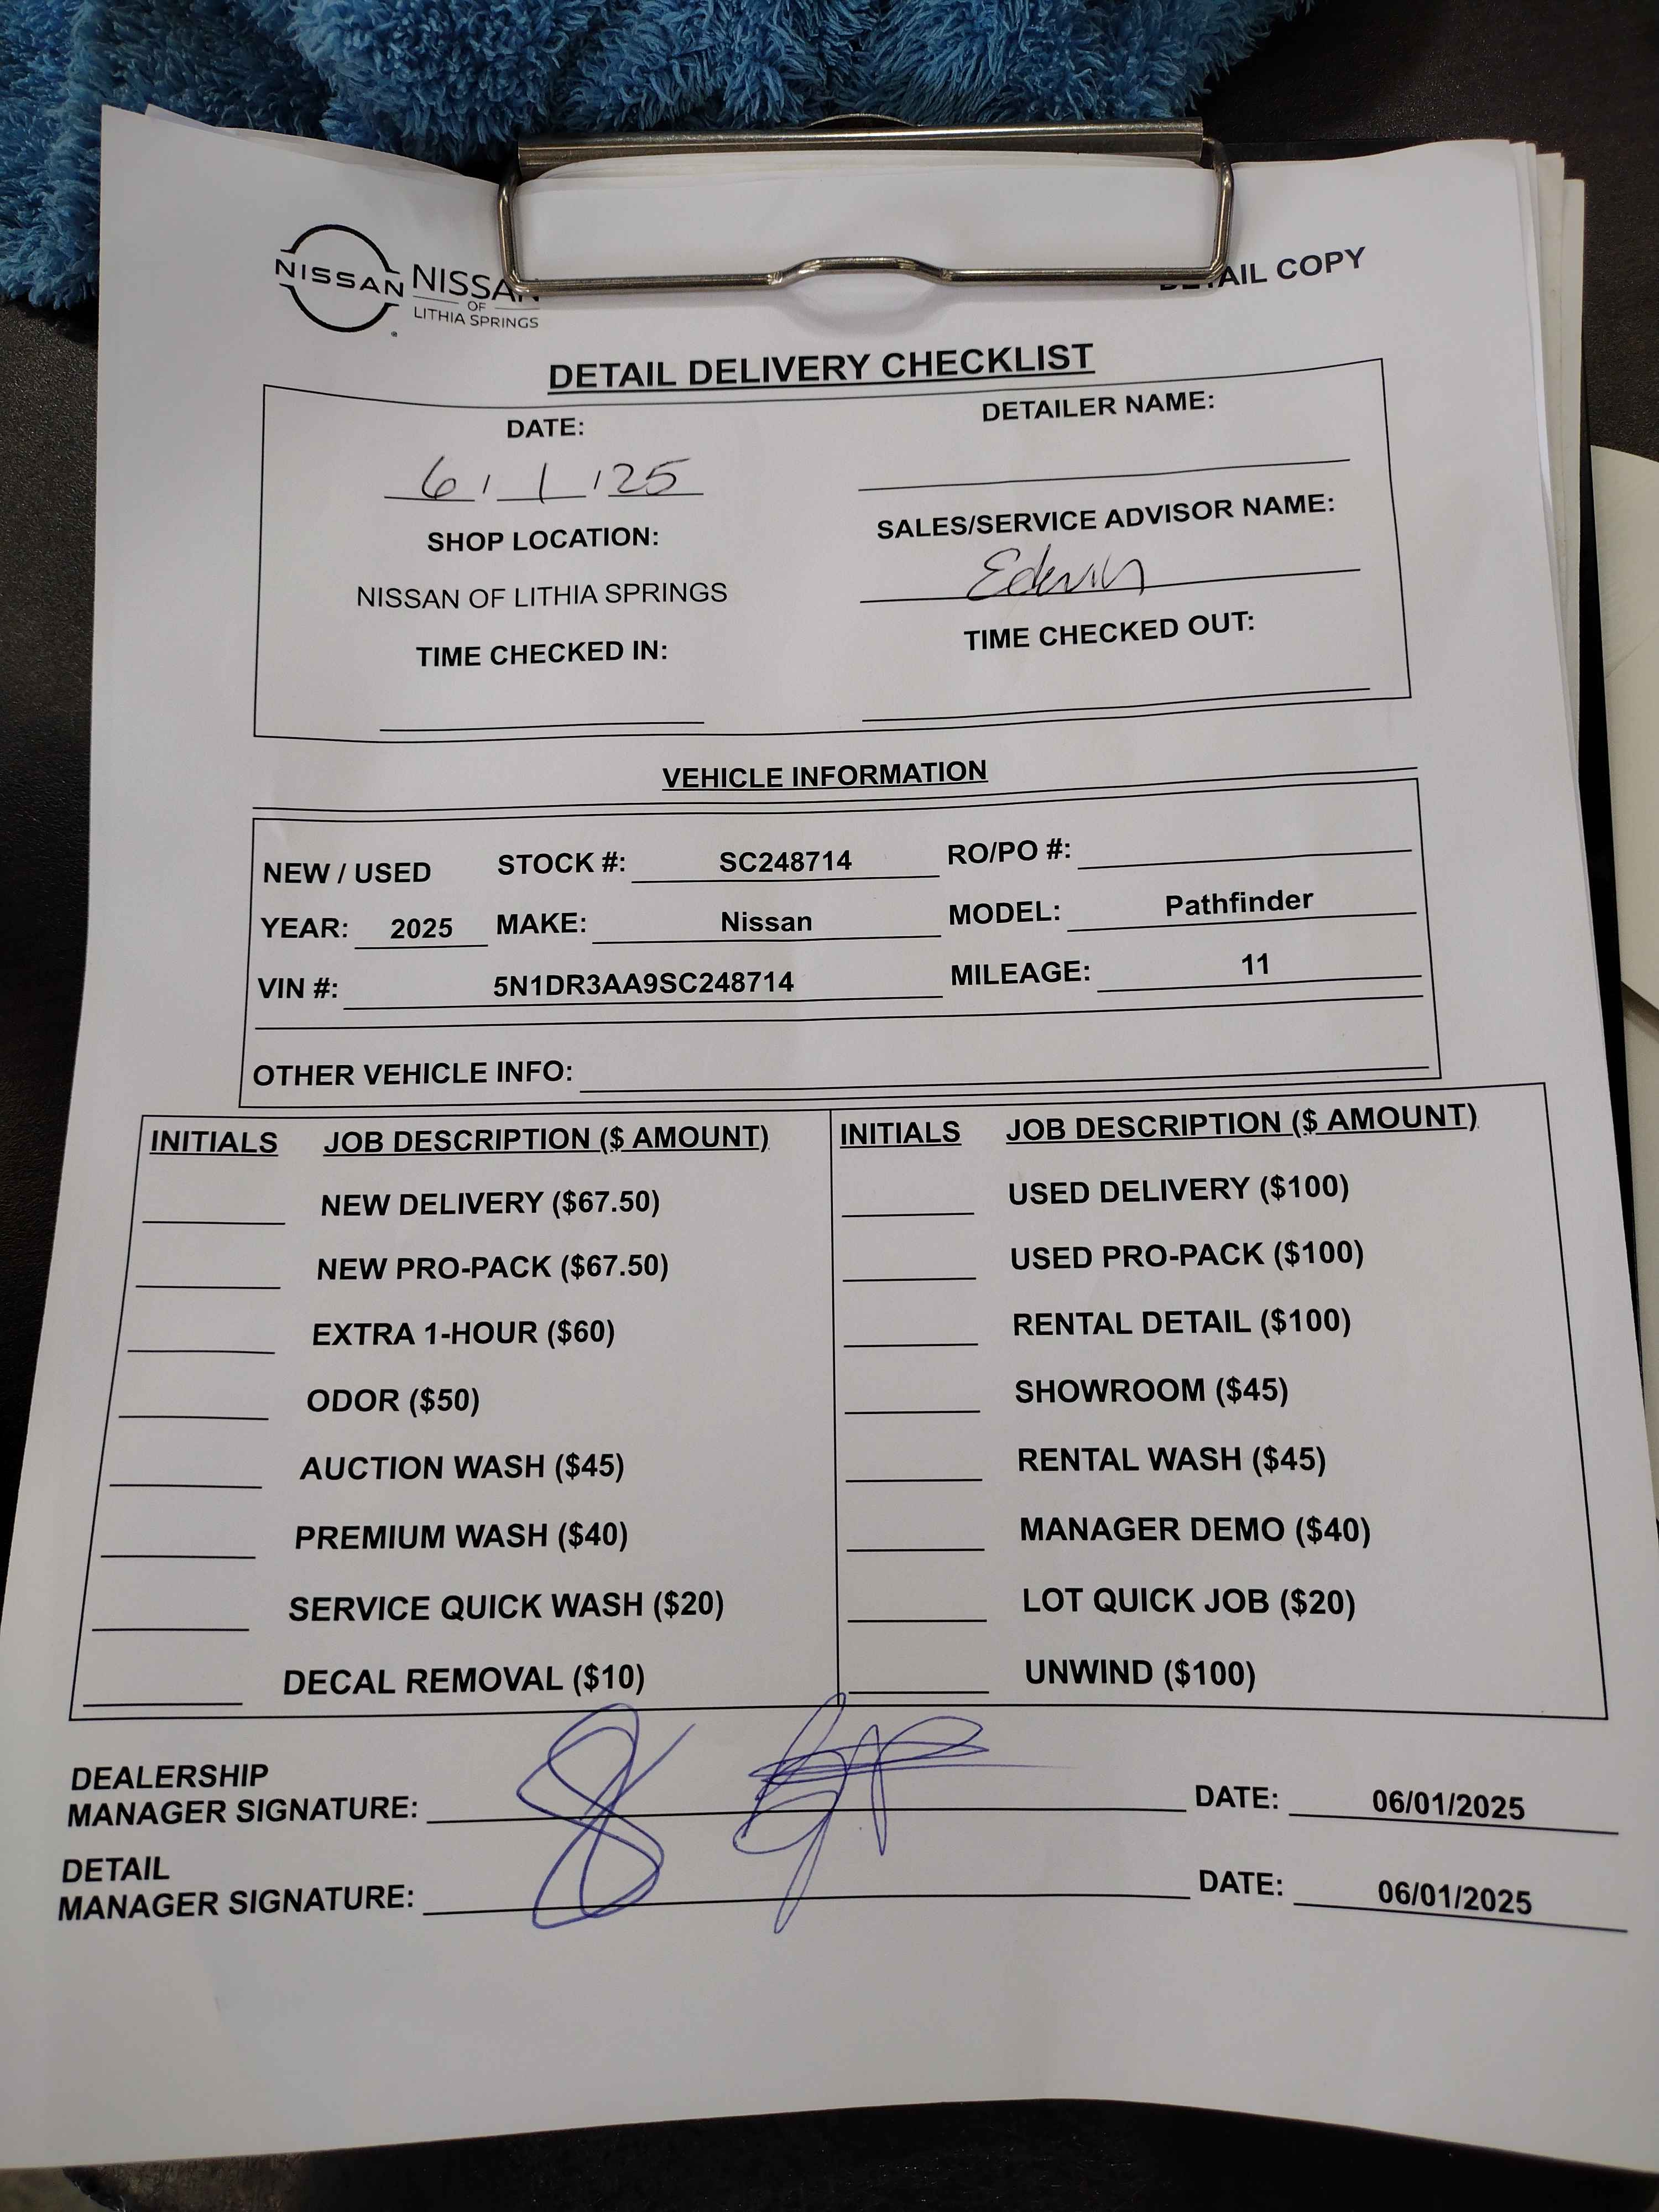 NISSAN
NISSAN
OF
LITHIA SPRINGS
DETAIL COPY
DETAIL DELIVERY CHECKLIST
DATE:
6 / 1 / 25
DETAILER NAME:
SHOP LOCATION:
NISSAN OF LITHIA SPRINGS
SALES/SERVICE ADVISOR NAME:
Edwin
TIME CHECKED IN:
TIME CHECKED OUT:
VEHICLE INFORMATION
NEW / USED STOCK #: SC248714 RO/PO #:
YEAR: 2025 MAKE: Nissan MODEL: Pathfinder
VIN #: 5N1DR3AA9SC248714 MILEAGE: 11
OTHER VEHICLE INFO:
INITIALS JOB DESCRIPTION ($ AMOUNT)
NEW DELIVERY ($67.50)
NEW PRO-PACK ($67.50)
EXTRA 1-HOUR ($60)
ODOR ($50)
AUCTION WASH ($45)
PREMIUM WASH ($40)
SERVICE QUICK WASH ($20)
DECAL REMOVAL ($10)
INITIALS JOB DESCRIPTION ($ AMOUNT)
USED DELIVERY ($100)
USED PRO-PACK ($100)
RENTAL DETAIL ($100)
SHOWROOM ($45)
RENTAL WASH ($45)
MANAGER DEMO ($40)
LOT QUICK JOB ($20)
UNWIND ($100)
DEALERSHIP
MANAGER SIGNATURE: DATE: 06/01/2025
DETAIL
MANAGER SIGNATURE: DATE: 06/01/2025